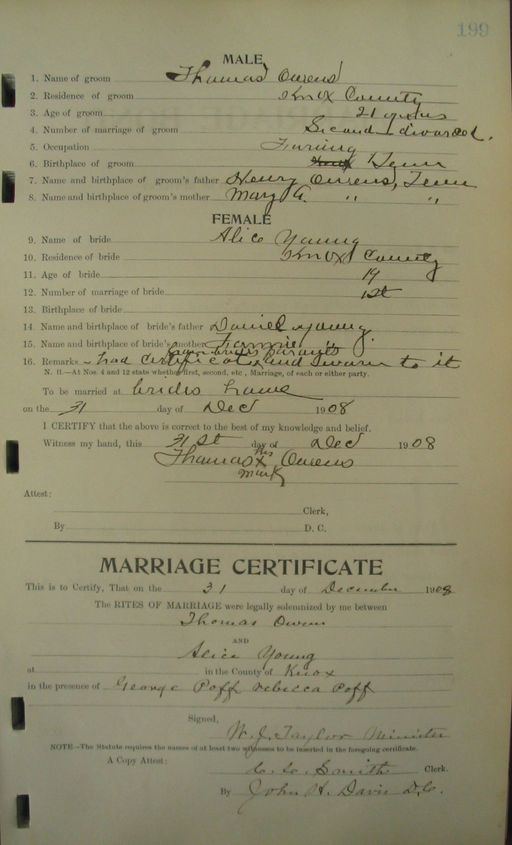 199
MALE
1. Name of groom Thomas Owens
2. Residence of groom Knox County
3. Age of groom 21 years
4. Number of marriage of groom Second - divorced.
5. Occupation Farming
6. Birthplace of groom Tenn
7. Name and birthplace of groom's father Henry Owens, Tenn
8. Name and birthplace of groom's mother Mary A. " "
FEMALE
9. Name of bride Alice Young
10. Residence of bride Knox County
11. Age of bride 19
12. Number of marriage of bride 1st
13. Birthplace of bride
14. Name and birthplace of bride's father Daniel Young.
15. Name and birthplace of bride's mother Fannie "
from brides parents
16. Remarks - had certificate, and sworn to it
N. B.—At Nos. 4 and 12 state whether first, second, etc., Marriage, of each or either party.
To be married at brides home
on the 31 day of Dec 1908
I CERTIFY that the above is correct to the best of my knowledge and belief.
Witness my hand, this 31st day of Dec 1908
Thomas his x mark Owens
Attest:
Clerk,
By D. C.
MARRIAGE CERTIFICATE
This is to Certify, That on the 31 day of December 1908
The RITES OF MARRIAGE were legally solemnized by me between
Thomas Owens
AND
Alice Young
at in the County of Knox
in the presence of George Poff rebecca Poff
Signed, W. J. Taylor Minister
NOTE—The Statute requires the names of at least two witnesses to be inserted in the foregoing certificate.
A Copy Attest: Smith Clerk.
By John H. Davis D.C.